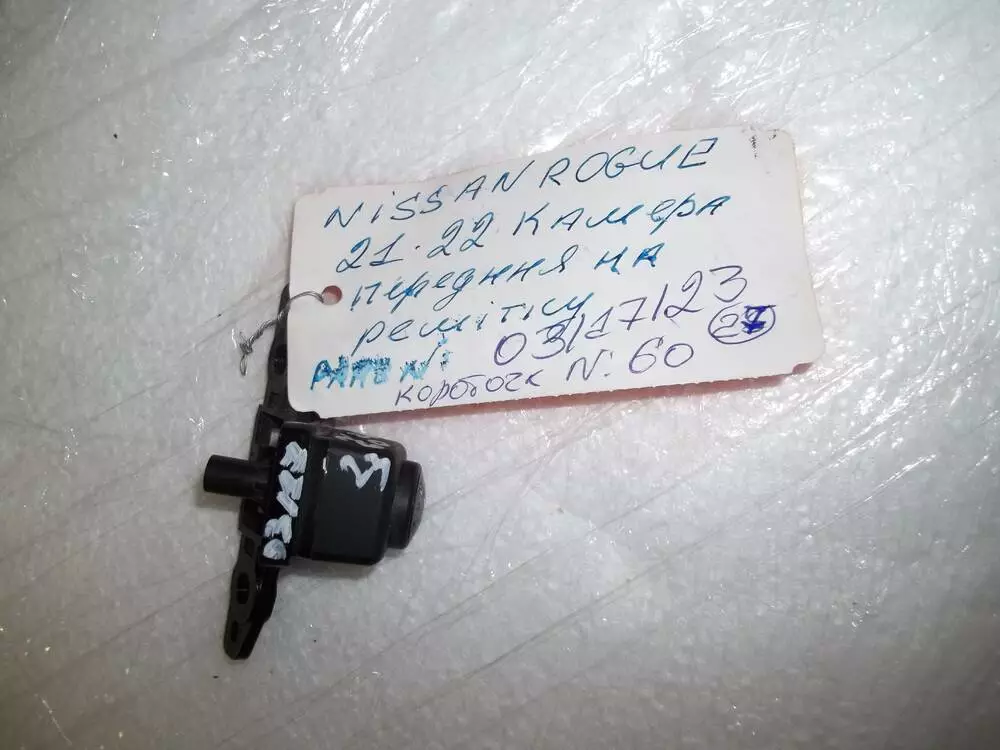 NISSAN ROGUE
21-22 КАМЕРА
передняя на
решітку
03/17/23
PARTS N:
коробочк N. 60